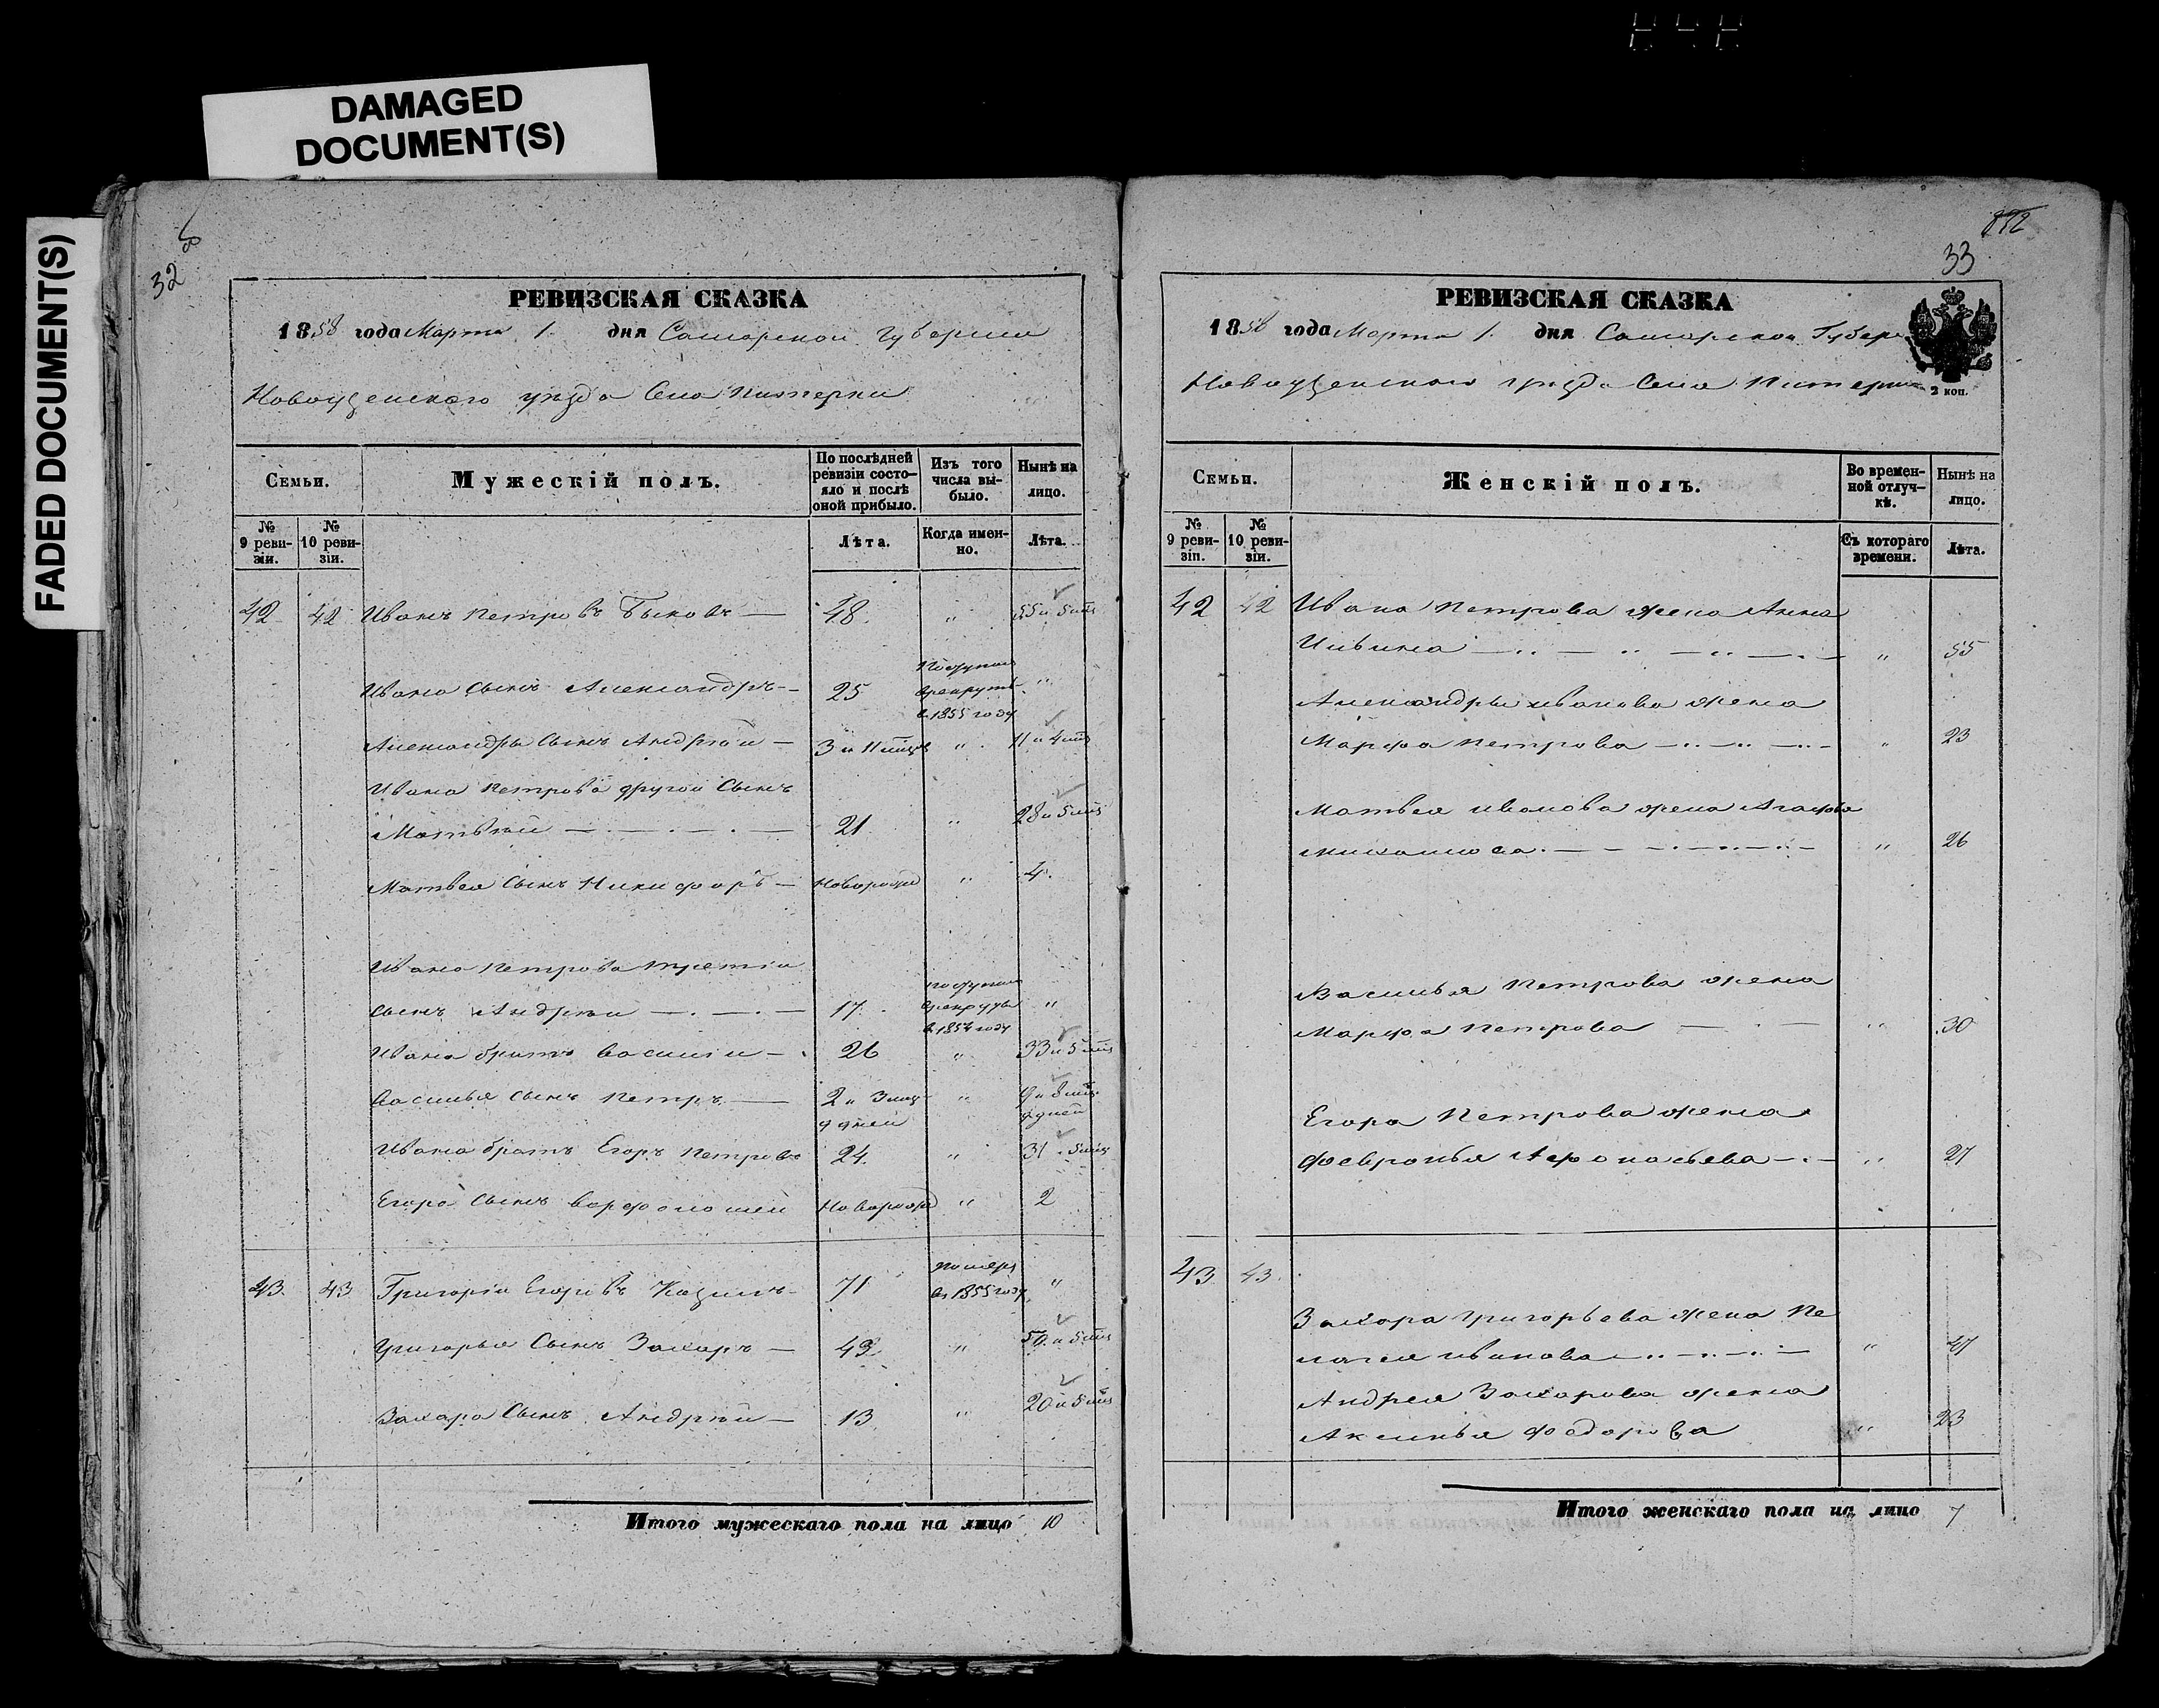 DAMAGED
DOCUMENT(S)
FADED DOCUMENT(S)
32
РЕВИЗСКАЯ СКАЗКА
1858 года Марта 1. дня Самарской Губернии
Новоузенского уезда Села Питерки
Семьи.
Мужескій полъ.
По послѣдней ревизіи состояло и послѣ оной прибыло.
Изъ того числа выбыло.
Нынѣ на лицо.
№ 9 ревизіи.
№ 10 ревизіи.
Лѣта.
Когда именно.
Лѣта.
42 42 Иванъ Петровъ Быковъ — 48. " 55 и 5 мц
Ивана Сынъ Александръ — 25 Поступил в рекруты в 1855 году "
Александры Сынъ Андрей — 3 и 11 мцев " 11 и 4 мц
Ивана Петрова другой Сынъ
Матвей — 21 " 28 и 5 мц
Матвея Сынъ Никифоръ — Новорожд " 4.
Ивана Петрова третій
сынъ Андрей — 17. поступил в рекруты в 1854 году "
Ивана братъ Василій — 26 " 33 и 5 мц
Василья Сынъ Петръ — 2 и 3 мца 9 дней " 9 и 8 мц 9 дней
Ивана братъ Егоръ Петровъ 24. " 31 и 5 мц
Егора Сынъ Варфоломей Новорожд " 2
43. 43 Григорій Егоровъ 71 помер в 1855 году "
Григорья Сынъ Захаръ — 43 " 50 и 5 мц
Захара Сынъ Андрей — 13 " 20 и 5 мц
Итого мужескаго пола на лицо 10
33
РЕВИЗСКАЯ СКАЗКА
1858 года Марта 1. дня Самарской Губер
Новоузенского уезда Села Питерки
2 коп.
Семьи.
Женскій полъ.
Во временной отлучкѣ.
Нынѣ на лицо.
№ 9 ревизіи.
№ 10 ревизіи.
Съ котораго времени.
Лѣта.
42 42 Ивана Петрова жена Анна
Ильина — " 55
Александры Иванова жена
Марфа Петрова — " 23
Матвея Иванова жена Агафья
Михайлова — " 26
Василья Петрова жена
Марфа Петрова — " 30
Егора Петрова жена
Февронья Афонасьева — " 27
43 43.
Захара Григорьева жена Пе
лагея Иванова — " 47
Андрея Захарова жена
Аксинья Федорова " 23
Итого женскаго пола на лицо 7